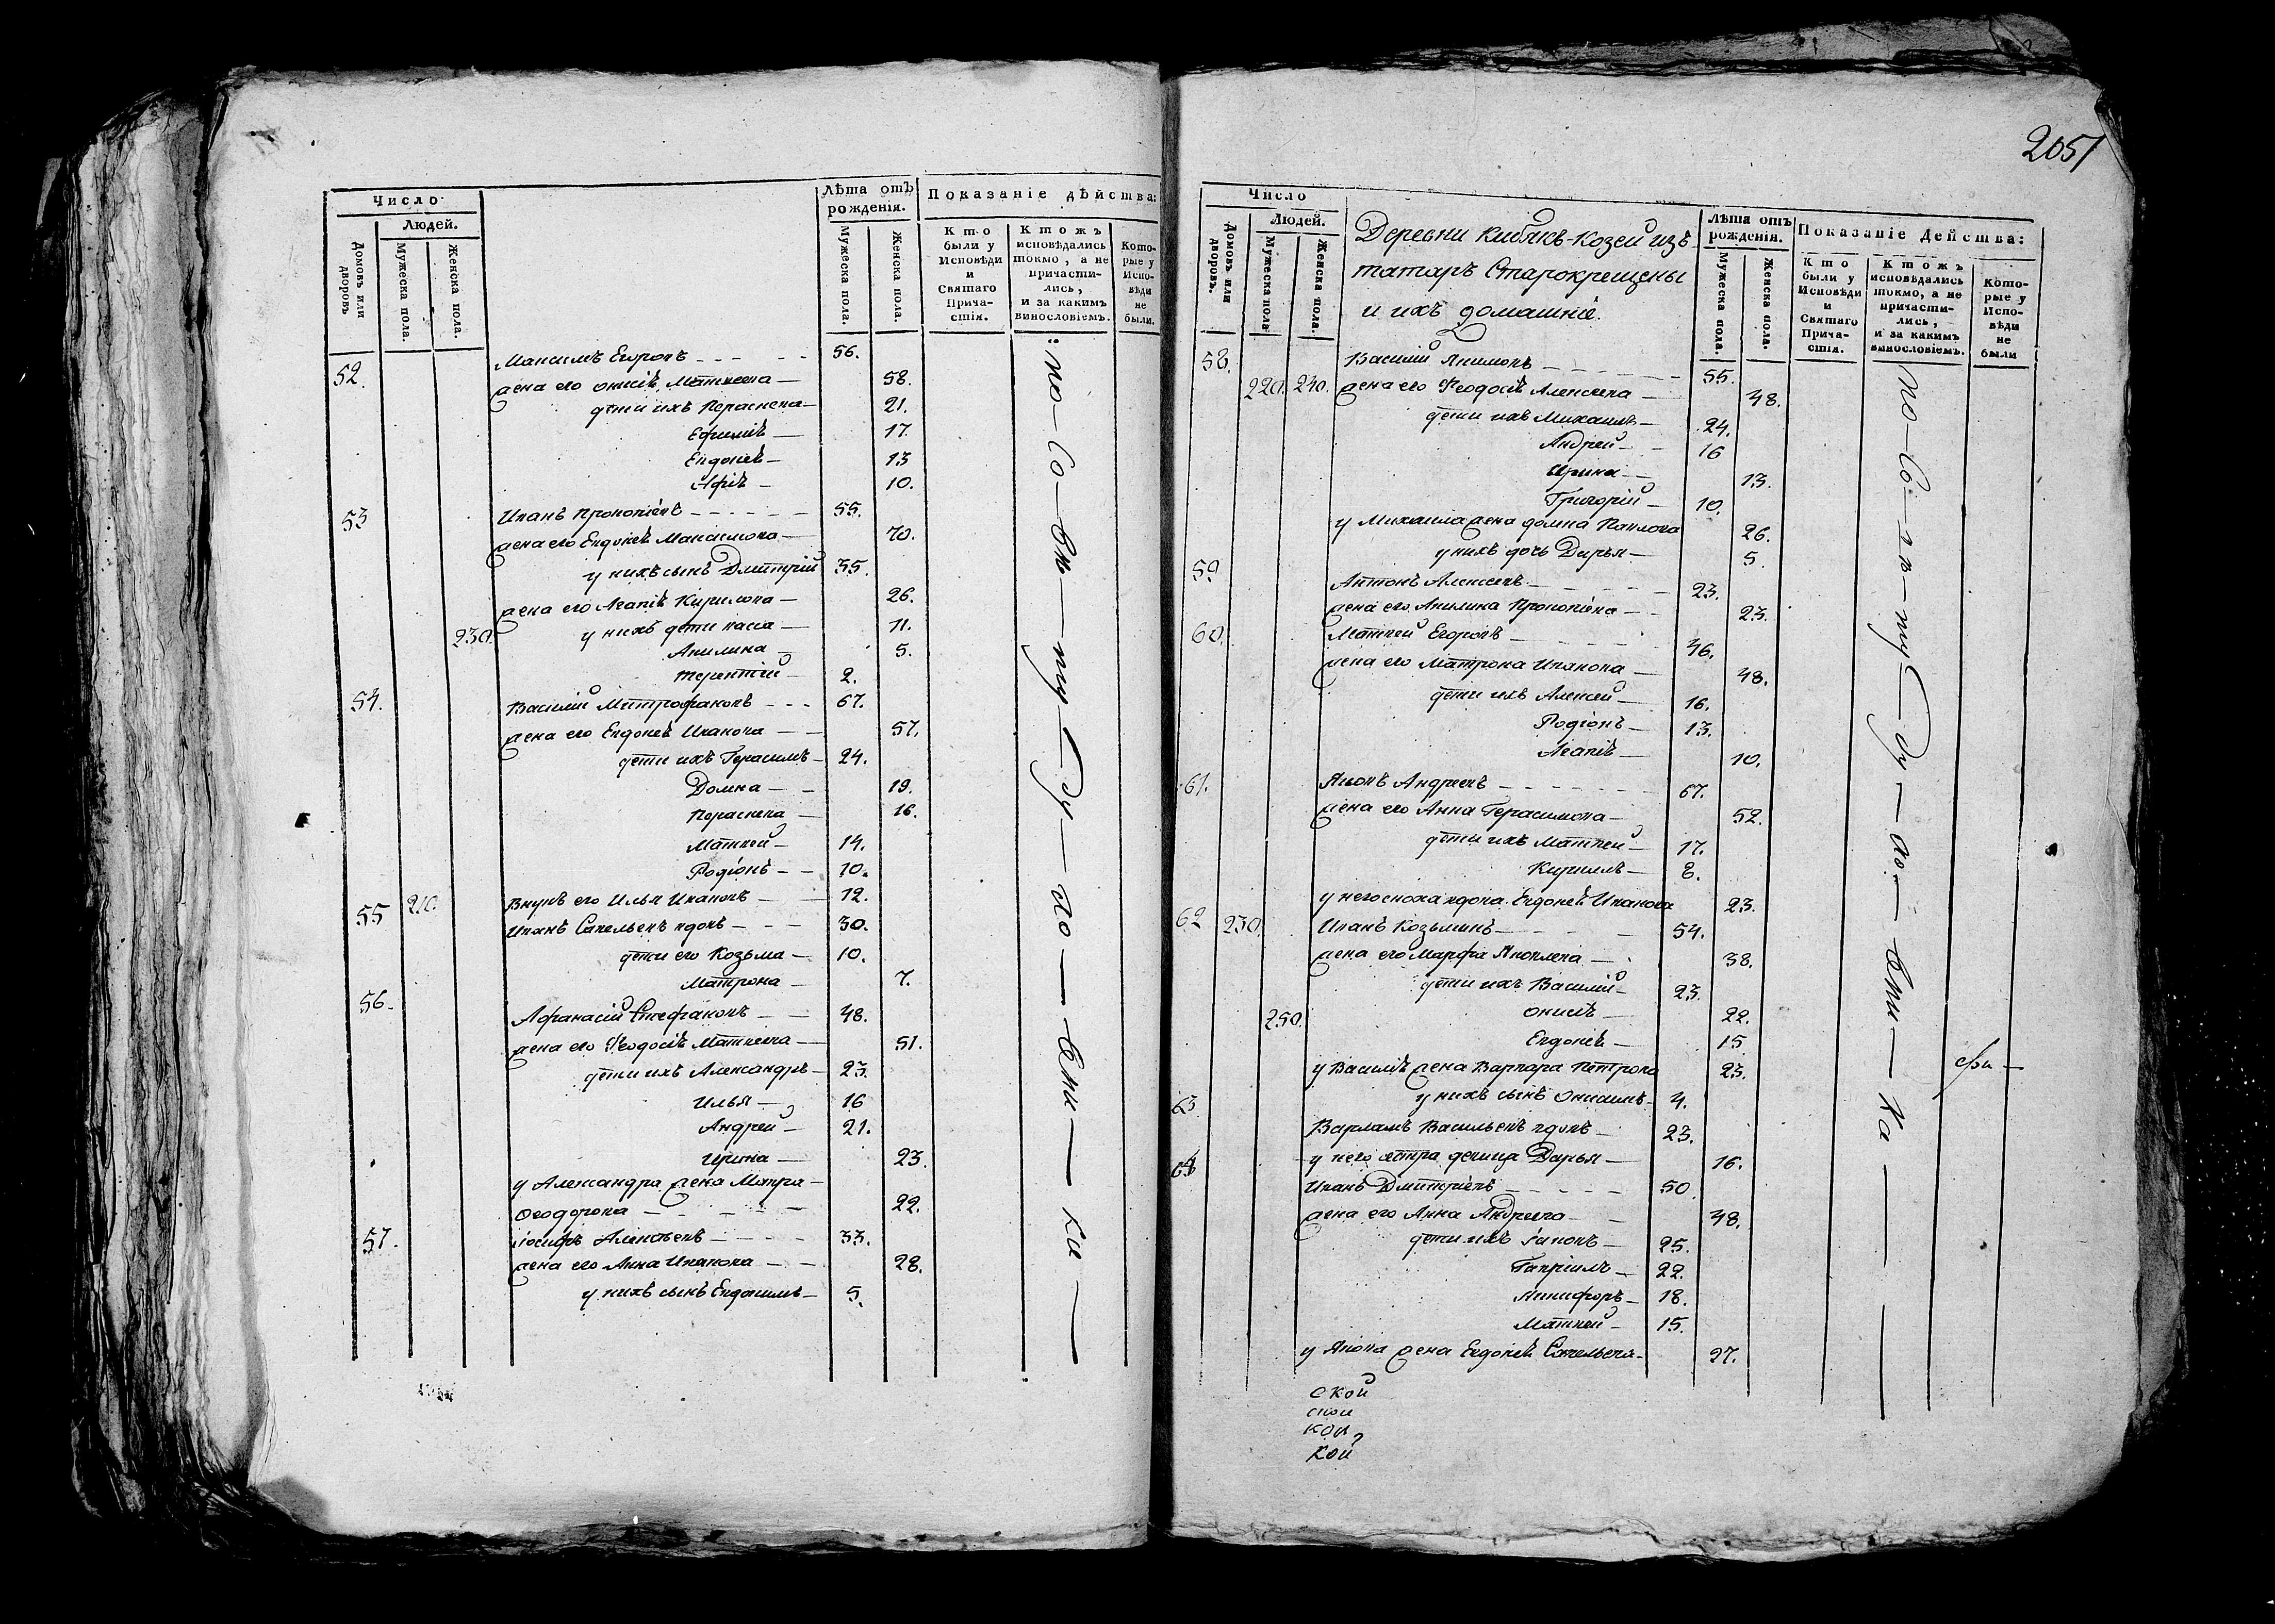 Число
Людей.
Домовъ или дворовъ
Мужеска пола.
Женска пола.
Лѣта отъ рожденія.
Мужеска пола.
Женска пола.
Показаніе дѣйства:
Кто были у Исповѣди и Святаго Прича-стія.
Ктожъ исповѣдались токмо, а не причасти-лись, и за какимъ винословіемъ.
Кото-рые у Испо-вѣди не были.
52. Максимъ Егоровъ 56.
жена его Матвеева 58.
дѣти ихъ Пераскева 21.
Ефимiѣ 17.
Евдокеѣ 13
10.
53 Иванъ Прокопiевъ 55.
жена его Евдокеѣ Максимова 70.
у нихъ сынъ Дмитрiй 35.
жена его Агапiѣ Кирилова 26.
230. у нихъ дѣти 11.
Акилина 5.
Терентiй 2.
54. Василiй Митрофановъ 67.
жена его Евдокеѣ Иванова 57.
дѣти ихъ Герасимъ 24.
Домна 19.
Пераскева 16.
Матвей 14.
Родiонъ 10.
Внукъ его Илья Ивановъ 12.
55 210. Иванъ Савельевъ вдовъ 30.
дѣти его Козьма 10.
Матрона 7.
56. Афанасiй Стефановъ 48.
жена его Феодосiѣ Матвеева 51.
дѣти ихъ Александръ 23.
Илья 16
Андрей 21.
Ирина 23.
у Александра жена Мавра
Феодорова 22.
57. Iосифъ Алексѣевъ 33.
жена его Анна Иванова 28.
у нихъ сынъ Евдокимъ 5.
2051
Число
Людей.
Домовъ или дворовъ.
Мужеска пола
Женска пола.
Деревни Кибякъ-Козей изъ
татаръ Старокрещены
и ихъ домашнiе.
Лѣта отъ рожденія.
Мужеска пола.
Женска пола.
Показаніе Действа:
Кто были у Исповѣди и Святаго Прича-стія.
Ктожъ исповѣдались токмо, а не причасти-лись, и за какимъ винословіемъ.
Кото-рые у Испо-вѣди не были
58. Василiй Якимовъ 55.
220. 240. жена его Феодосiѣ Алексеева 48.
дѣти ихъ Михаилъ 24.
Андрей 16
Ирина 13.
Григорiй 10.
у Михаила жена Домна Павлова 26.
у нихъ дочь Дарья 5.
59 Антонъ Алексеевъ 23.
жена его Акилина Прокопiева 23.
60. Матвей Егоровъ 46.
жена его Матрона Иванова 48.
дѣти ихъ Алексей 16.
Родiонъ 13.
Агапiѣ 10.
61. Яковъ Андреевъ 67.
жена его Анна Герасимова 52.
дѣти ихъ Матвей 17.
Кирилъ 8.
у него сноха вдова Евдокеѣ Иванова 23.
62 230. Иванъ Козьминъ 54.
жена его Марфа Яковлева 38.
дѣти ихъ Василiй 23.
250. 22.
Евдокеѣ 15
у Василiѣ жена Варвара Петрова 23.
у нихъ сынъ Онисимъ 4.
63 Варламъ Васильевъ вдовъ 23.
у него сестра девица Дарья 16.
64 Иванъ Дмитрiевъ 50
жена его Анна Андреева 48.
дѣти ихъ Яковъ 25.
Гаврiилъ 22.
Никифоръ 18.
Матвей 15.
у Якова жена Евдокеѣ Савельева 27.
ской
ской
кой
кой